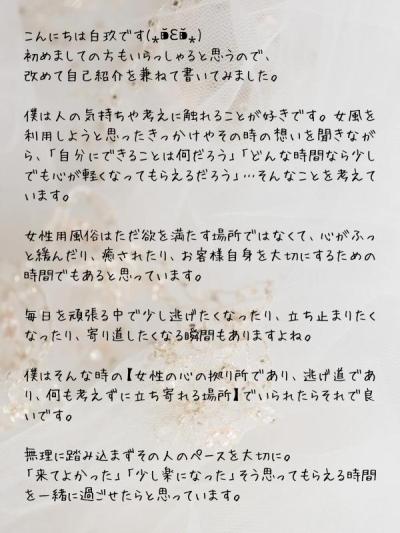 こんにちは白玖です(⁎ ꈊ ꇴ ꈊ ⁎)
初めましての方もいらっしゃると思うので、
改めて自己紹介を兼ねて書いてみました。
僕は人の気持ちや考えに触れることが好きです。女風を
利用しようと思ったきっかけやその時の想いを聞きなが
ら、「自分にできることは何だろう」「どんな時間なら少し
でも心が軽くなってもらえるだろう」…そんなことを考えて
います。
女性用風俗はただ欲を満たす場所ではなくて、心がふっ
と緩んだり、癒されたり、お客様自身を大切にするための
時間でもあると思っています。
毎日を頑張る中で少し逃げたくなったり、立ち止まりたく
なったり、寄り道したくなる瞬間もありますよね。
僕はそんな時の【女性の心の拠り所であり、逃げ道であ
り、何も考えずに立ち寄れる場所】でいられたらそれで良
いです。
無理に踏み込まずその人のペースを大切に。
「来てよかった」「少し楽になった」そう思ってもらえる時間
を一緒に過ごせたらと思っています。